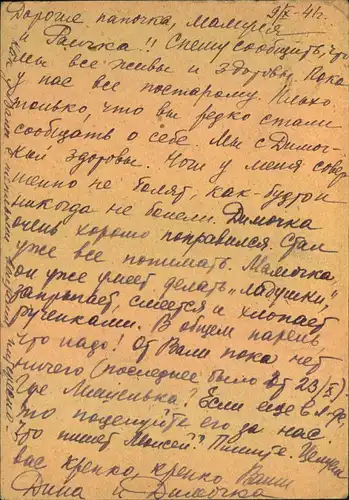 9/X-41г.
Дорогие папочка, мамуся
и Раичка!! Спешу сообщить, что
мы все живы и здоровы. Пока
у нас все постарому. Плохо
только, что вы редко стали
сообщать о себе. Мы с Димоч-
кой здоровы. Ноги у меня совер
шенно не болят, как-будто
никогда не болели. Димочка
очень хорошо поправился. Стал
уже все понимать. Мамочка,
он уже умеет делать „ладушки“,
запрыгает, смеется и хлопает
ручёнками. В общем парень
что надо! От Вали пока нет
ничего (последнее было от 23/IX).
Где Мишенька? Если еще в
то поцелуйте его за нас.
Что пишет Моисей? Пишите. Целуем
вас крепко, крепко, Ваши
Дина и Димочка